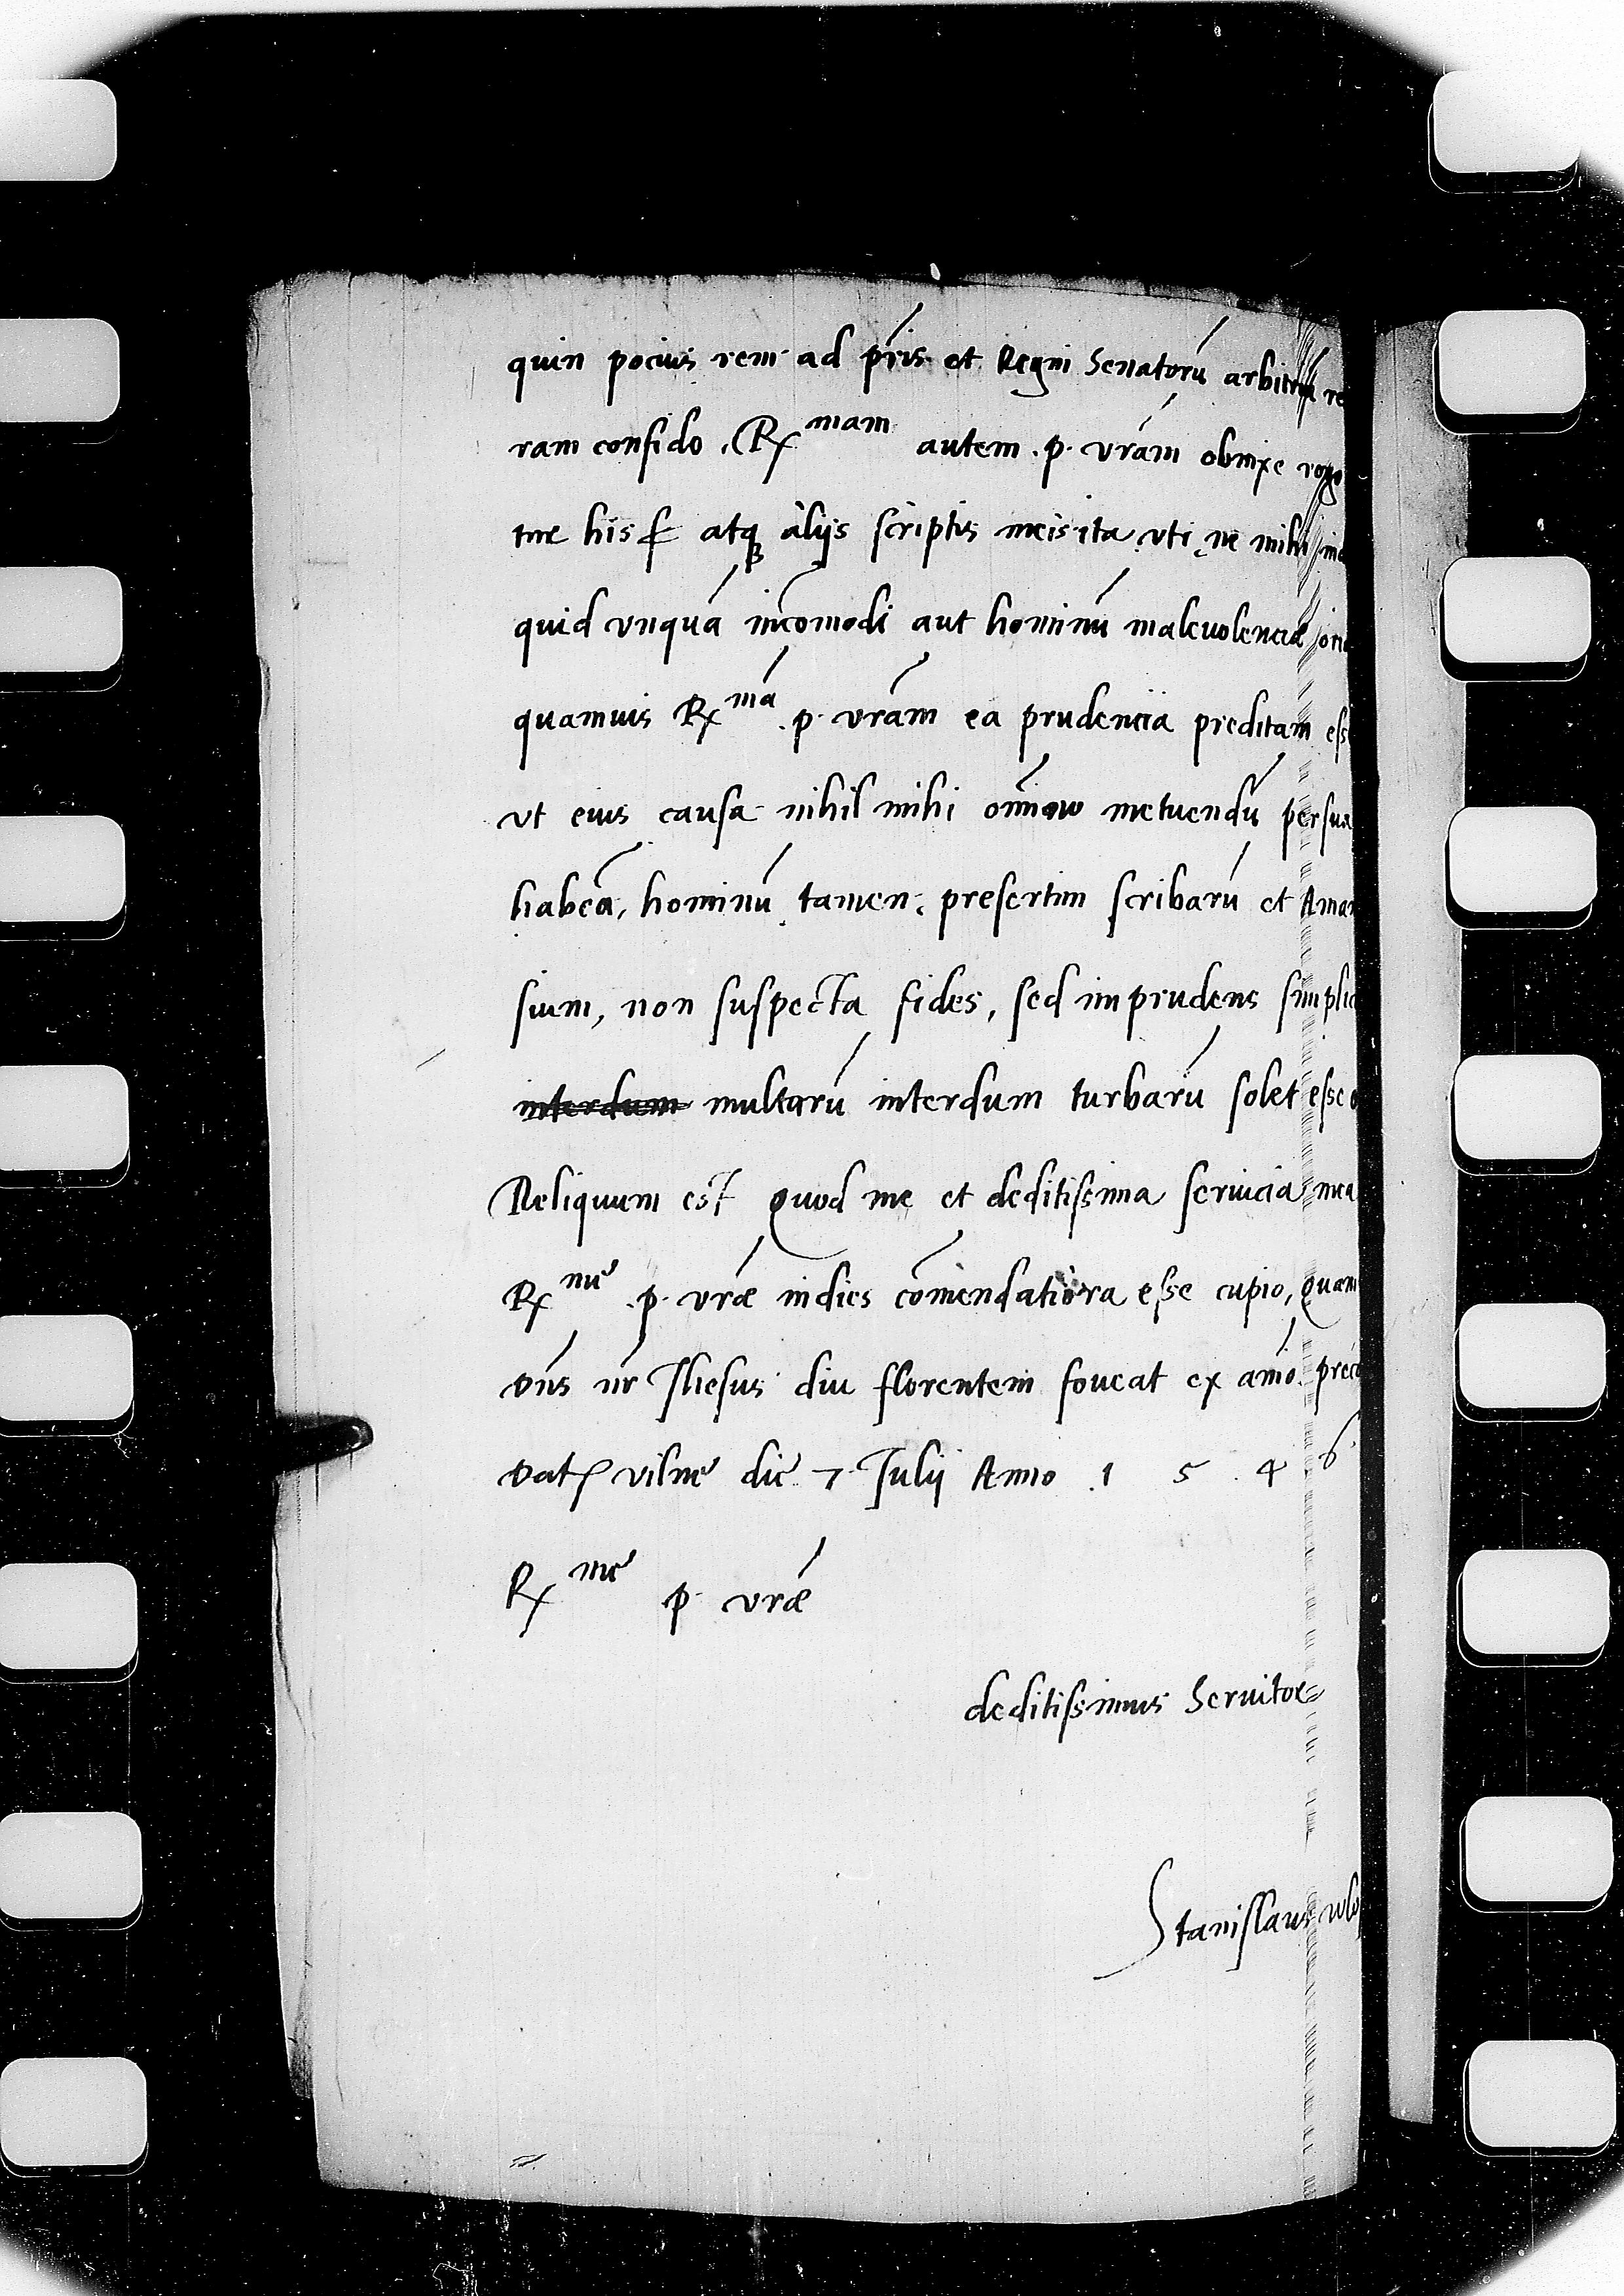 quin pocius rem ad pr̃is et Regni Senatorũ arbitriũ re
ram confido. Rx mam autem .p. vrãm obnixe rogo
me his atq aliis scriptis meis ita uti ne mihi
quid vnquã incõmodi aut hominũ maleuolenciæ ori
quamuis Rx mã .p. vrãm ea prudencia preditam ess
vt eius causa nihil mihi oĩno metuendũ persua
habeã, hominũ tamen, presertim scribarũ et Aman
sium, non suspecta fides, sed imprudens simplic
interdum multarũ interdum turbarũ solet esse
Reliquum est quod me et deditissima seruicia mea
Rx me .p. vræ̃ indies cõmendatiora esse cupio, quam
dñs nr̃ Jhesus diu florentem foueat ex aĩo prec
dat vilne die 7 Julij Anno .1 5 . 4 6
Rx me .p. vræ̃
deditissimus Seruitor
Stanislaus